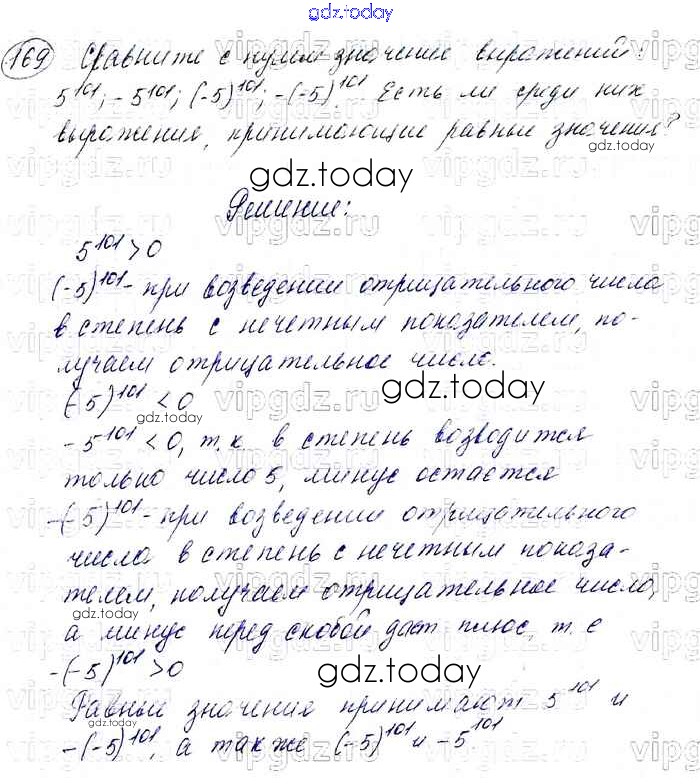 gdz.today
169 Сравните с нулём значение выражений:
5¹⁰¹; -5¹⁰¹; (-5)¹⁰¹; -(-5)¹⁰¹. Есть ли среди них
выражения, принимающие равные значения?
gdz.today
gdz.today
Решение:
5¹⁰¹>0
(-5)¹⁰¹- при возведении отрицательного числа
в степень с нечетным показателем, по-
лучаем отрицательное число.
gdz.today
(-5)¹⁰¹<0
gdz.today
-5¹⁰¹<0, т.к. в степень возводится
только число 5, минус остается
-(-5)¹⁰¹- при возведении отрицательного
числа в степень с нечетным показа-
телем, получаем отрицательное число,
gdz.today
а минус перед скобой даст плюс, т.е
-(-5)¹⁰¹>0
gdz.today
Равные значения принимают 5¹⁰¹ и
-(-5)¹⁰¹, а также (-5)¹⁰¹ и -5¹⁰¹.
gdz.today
vipgdz.ru